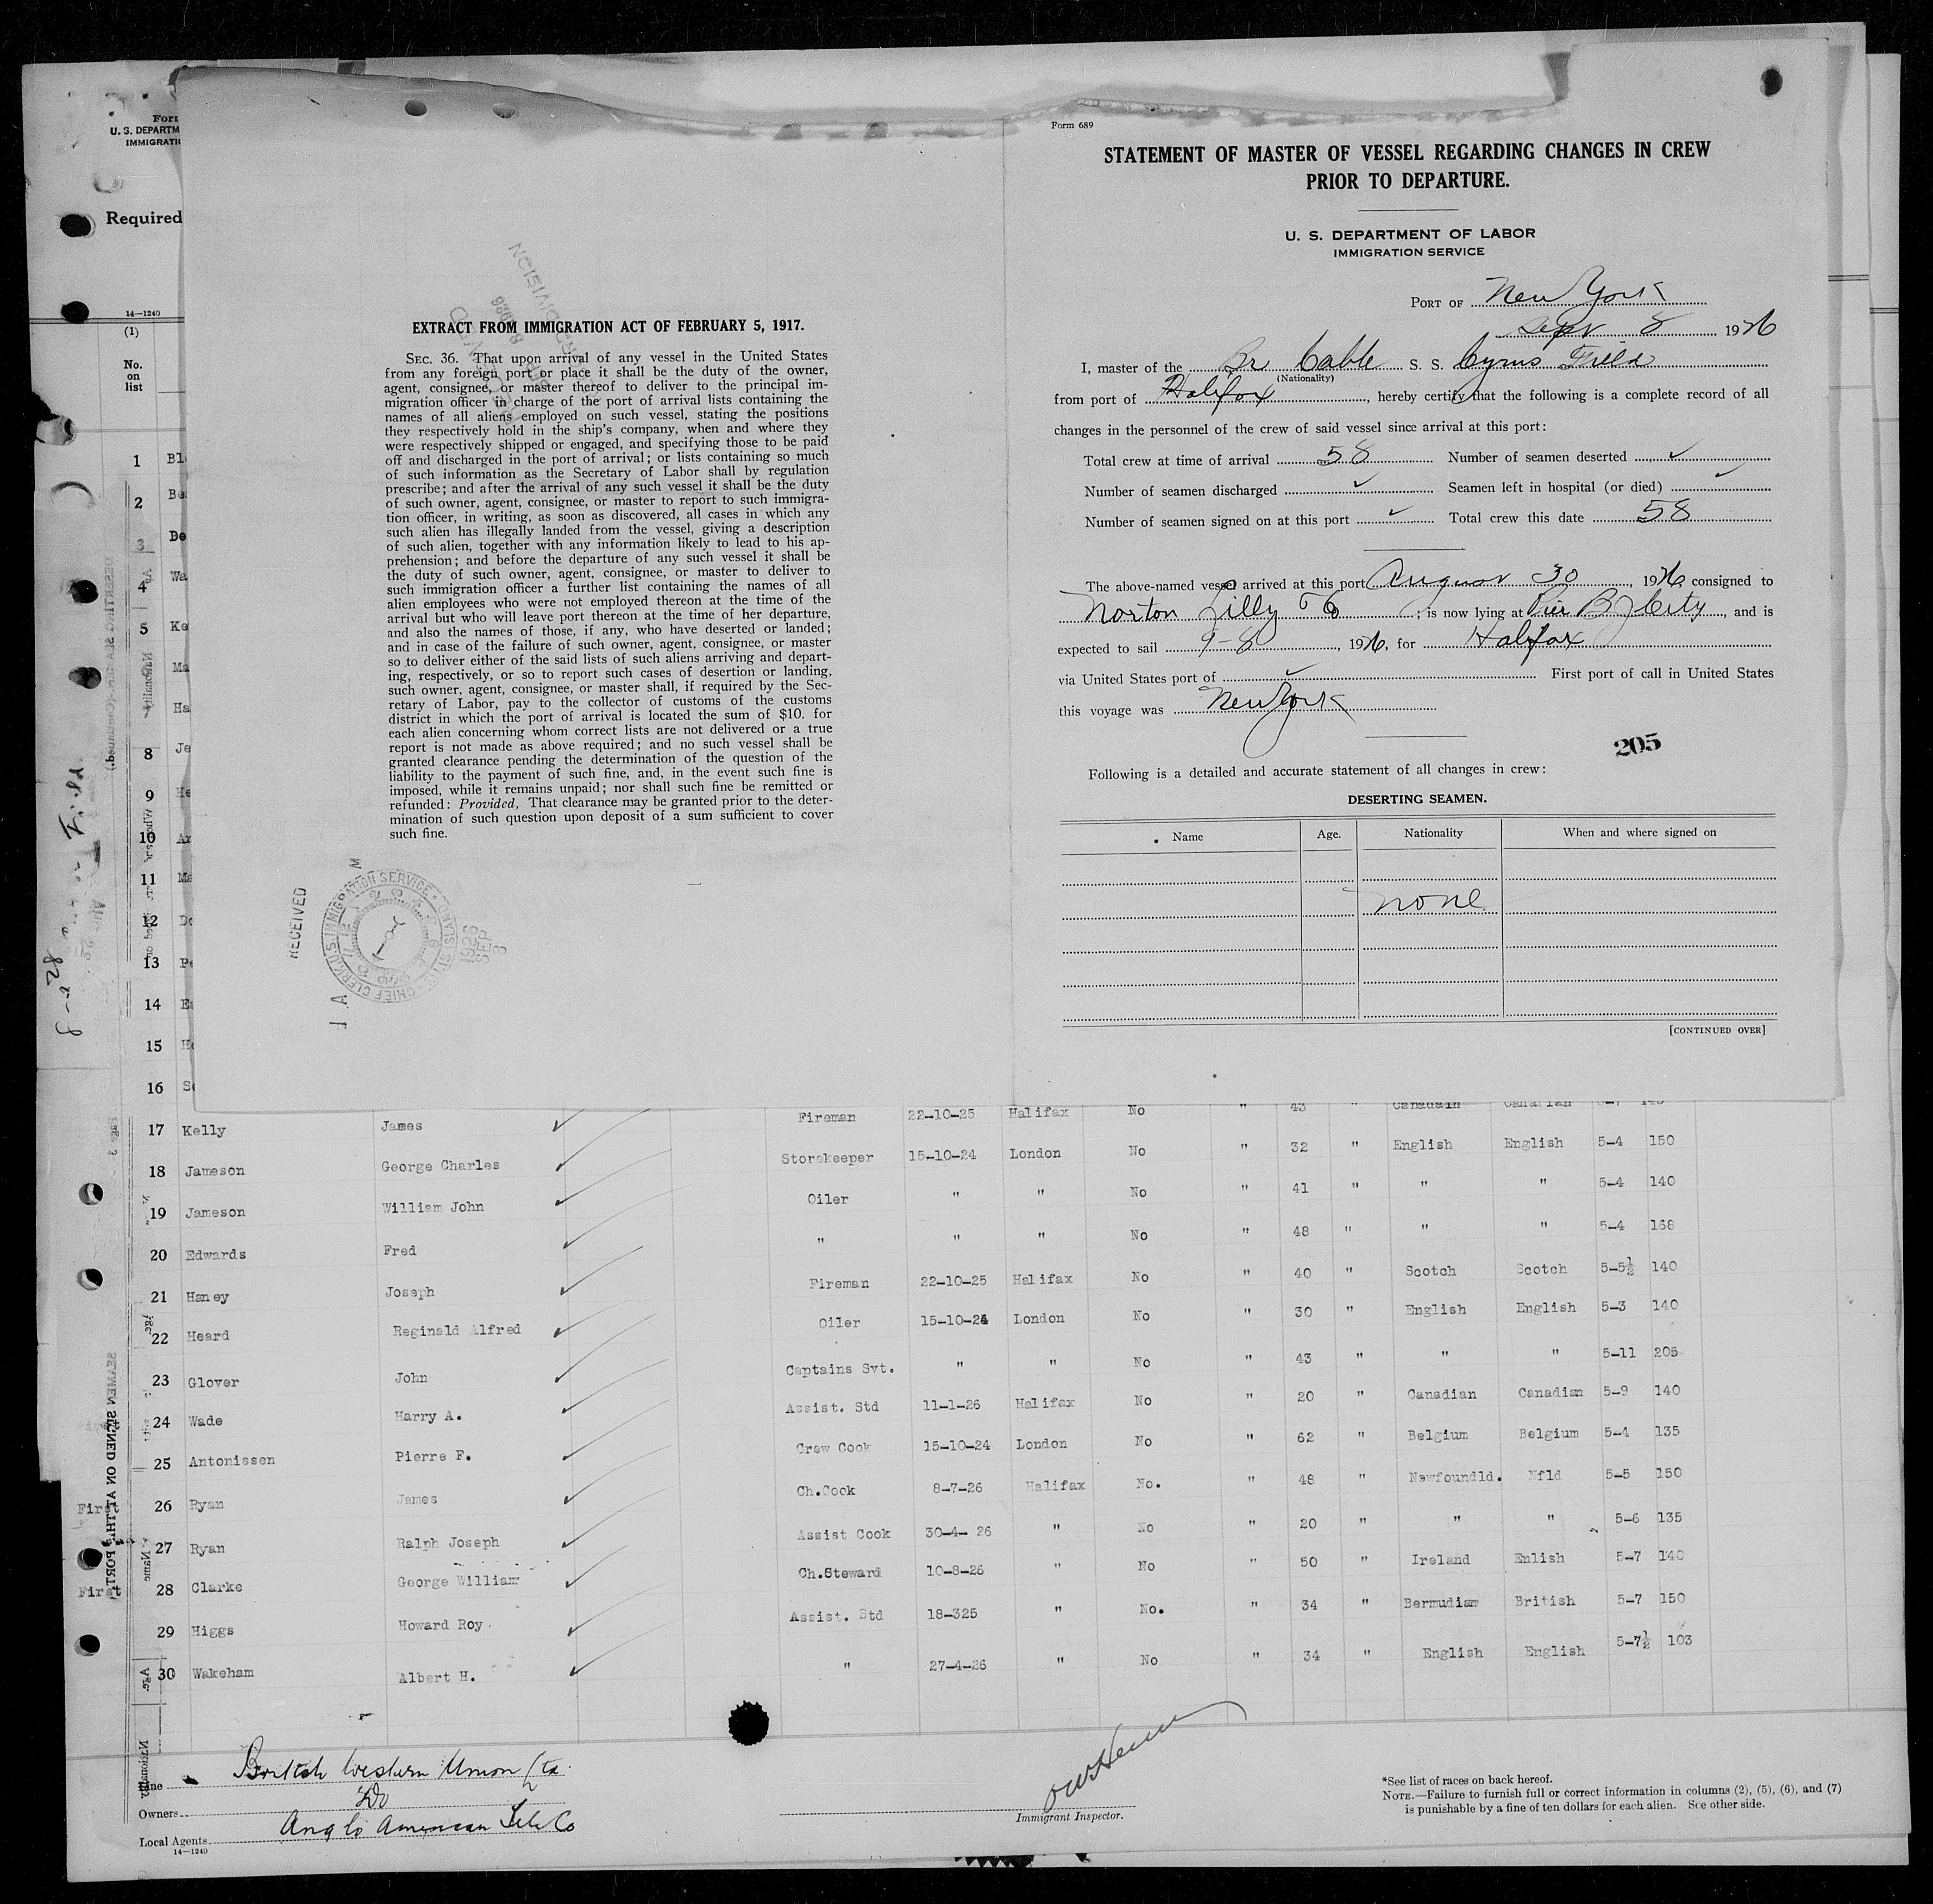 Form 689
STATEMENT OF MASTER OF VESSEL REGARDING CHANGES IN CREW
PRIOR TO DEPARTURE.
U. S. DEPARTMENT OF LABOR
IMMIGRATION SERVICE
PORT OF New York
Sept 8 1926
I, master of the Br Cable S. S. Cyrus Field
(Nationality)
from port of Halifax, hereby certify that the following is a complete record of all
changes in the personnel of the crew of said vessel since arrival at this port:
Total crew at time of arrival 58 Number of seamen deserted ✓
Number of seamen discharged ✓ Seamen left in hospital (or died) ✓
Number of seamen signed on at this port ✓ Total crew this date 58
The above-named vessel arrived at this port August 30, 1926 consigned to
Norton Lilly Co; is now lying at Pier B J City, and is
expected to sail 9-8, 1926, for Halifax
via United States port of ✓ First port of call in United States
this voyage was New York
205
Following is a detailed and accurate statement of all changes in crew:
DESERTING SEAMEN.
Name Age. Nationality When and where signed on
none
[CONTINUED OVER]
EXTRACT FROM IMMIGRATION ACT OF FEBRUARY 5, 1917.
SEC. 36. That upon arrival of any vessel in the United States
from any foreign port or place it shall be the duty of the owner,
agent, consignee, or master thereof to deliver to the principal im-
migration officer in charge of the port of arrival lists containing the
names of all aliens employed on such vessel, stating the positions
they respectively hold in the ship's company, when and where they
were respectively shipped or engaged, and specifying those to be paid
off and discharged in the port of arrival; or lists containing so much
of such information as the Secretary of Labor shall by regulation
prescribe; and after the arrival of any such vessel it shall be the duty
of such owner, agent, consignee, or master to report to such immigra-
tion officer, in writing, as soon as discovered, all cases in which any
such alien has illegally landed from the vessel, giving a description
of such alien, together with any information likely to lead to his ap-
prehension; and before the departure of any such vessel it shall be
the duty of such owner, agent, consignee, or master to deliver to
such immigration officer a further list containing the names of all
alien employees who were not employed thereon at the time of the
arrival but who will leave port thereon at the time of her departure,
and also the names of those, if any, who have deserted or landed;
and in case of the failure of such owner, agent, consignee, or master
so to deliver either of the said lists of such aliens arriving and depart-
ing, respectively, or so to report such cases of desertion or landing,
such owner, agent, consignee, or master shall, if required by the Sec-
retary of Labor, pay to the collector of customs of the customs
district in which the port of arrival is located the sum of $10. for
each alien concerning whom correct lists are not delivered or a true
report is not made as above required; and no such vessel shall be
granted clearance pending the determination of the question of the
liability to the payment of such fine, and, in the event such fine is
imposed, while it remains unpaid; nor shall such fine be remitted or
refunded: Provided, That clearance may be granted prior to the deter-
mination of such question upon deposit of a sum sufficient to cover
such fine.
RECEIVED
1926 SEP 8
U. S. DEPARTM
IMMIGRATIO
Required
14—1240
(1)
No.
on
list
1 Bl
2 Be
3 De
4 Wa
5 Ke
Ma
7 Ha
8 Je
9 He
10 Ar
11 Ma
12 Do
13 Pe
14 Ed
15 He
16 S
17 Kelly James ✓ Fireman 22-10-25 Halifax No " 43 " Canadain Canadian
18 Jameson George Charles ✓ Storekeeper 15-10-24 London No " 32 " English English 5-4 150
19 Jameson William John ✓ Oiler " " No " 41 " " " 5-4 140
20 Edwards Fred ✓ " " " No " 48 " " " 5-4 168
21 Haney Joseph ✓ Fireman 22-10-25 Halifax No " 40 " Scotch Scotch 5-5½ 140
22 Heard Reginald Alfred ✓ Oiler 15-10-24 London No " 30 " English English 5-3 140
23 Glover John ✓ Captains Svt. " " No " 43 " " " 5-11 205
24 Wade Harry A. ✓ Assist. Std 11-1-26 Halifax No " 20 " Canadian Canadian 5-9 140
25 Antonissen Pierre F. ✓ Crew Cook 15-10-24 London No " 62 " Belgium Belgium 5-4 135
26 Ryan James ✓ Ch.Cook 8-7-26 Halifax No. " 48 " Newfoundld. Nfld 5-5 150
27 Ryan Ralph Joseph ✓ Assist Cook 30-4- 26 " No " 20 " " " 5-6 135
28 Clarke George William ✓ Ch.Steward 10-8-26 " No " 50 " Ireland Enlish 5-7 140
29 Higgs Howard Roy ✓ Assist. Std 18-325 " No. " 34 " Bermudian British 5-7 150
30 Wakeham Albert H. ✓ " 27-4-26 " No " 34 " English English 5-7½ 103
Line British Western Union Ltd
Owners Do
Local Agents Anglo American Tele Co
14—1240
Immigrant Inspector.
*See list of races on back hereof.
NOTE.—Failure to furnish full or correct information in columns (2), (5), (6), and (7)
is punishable by a fine of ten dollars for each alien. See other side.